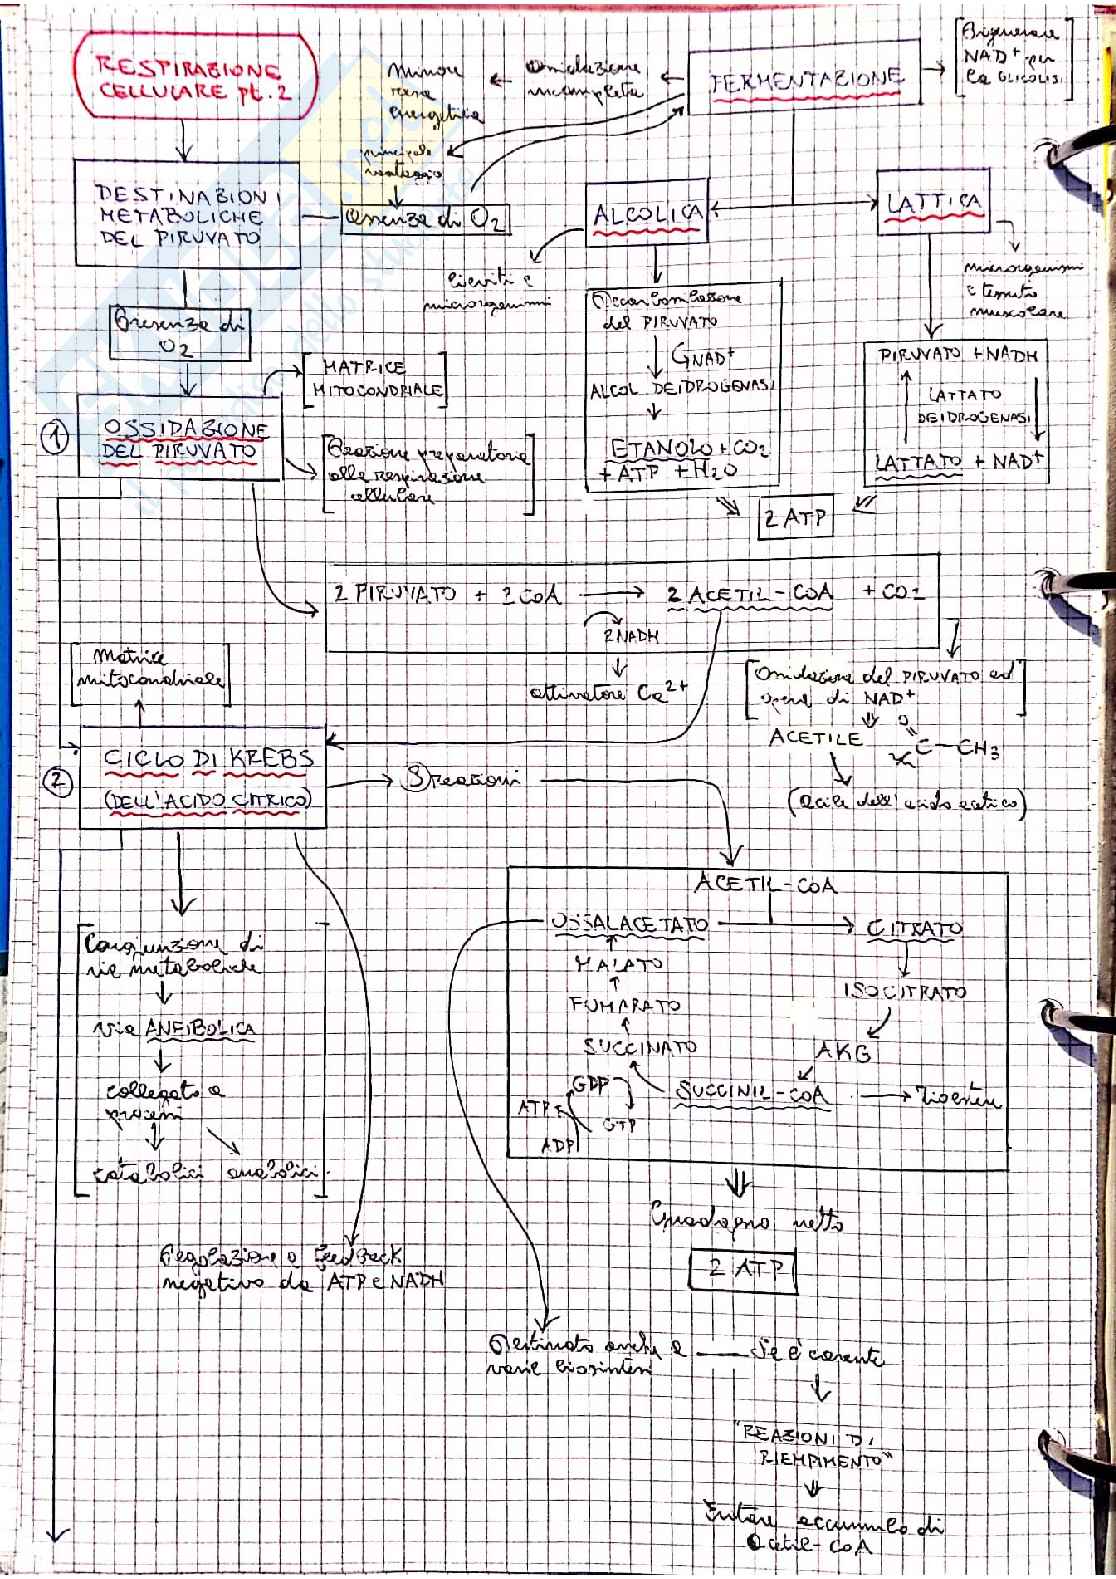 RESPIRAZIONE
CELLULARE pt. 2
Minore
resa
energetica
Ossidazione
incompleta
FERMENTAZIONE
Rigenerare
NAD+ per
la GLICOLISI
principale
vantaggio
DESTINAZIONI
METABOLICHE
DEL PIRUVATO
assenza di O2
ALCOLICA
LATTICA
lieviti e
microrganismi
microrganismi
e tessuto
muscolare
Presenza di
O2
Decarbossilazione
del PIRUVATO
NAD+
ALCOL DEIDROGENASI
ETANOLO + CO2
+ ATP + H2O
PIRUVATO + NADH
LATTATO
DEIDROGENASI
LATTATO + NAD+
2 ATP
MATRICE
MITOCONDRIALE
1
OSSIDAZIONE
DEL PIRUVATO
Reazione preparatoria
alla respirazione
cellulare
2 PIRUVATO + 2 COA → 2 ACETIL-COA + CO2
2NADH
attivatore Ca2+
Ossidazione del PIRUVATO ad
opera di NAD+
ACETILE
O
C-CH3
(acile dell'acido acetico)
Matrice
mitocondriale
2
CICLO DI KREBS
(DELL'ACIDO CITRICO)
8 reazioni
ACETIL-COA
OSSALACETATO
CITRATO
MALATO
ISOCITRATO
FUMARATO
SUCCINATO
AKG
SUCCINIL-COA
GDP
GTP
ATP
ADP
Congiunzione di
vie metaboliche
via ANFIBOLICA
collegato a
processi
catabolici anabolici
Guadagno netto
2 ATP
Regolazione a feedback
negativo da ATP e NADH
Destinato anche a
varie biosintesi
Se è carente
"REAZIONI DI
RIEMPIMENTO"
Evitare accumulo di
acetil-CoA